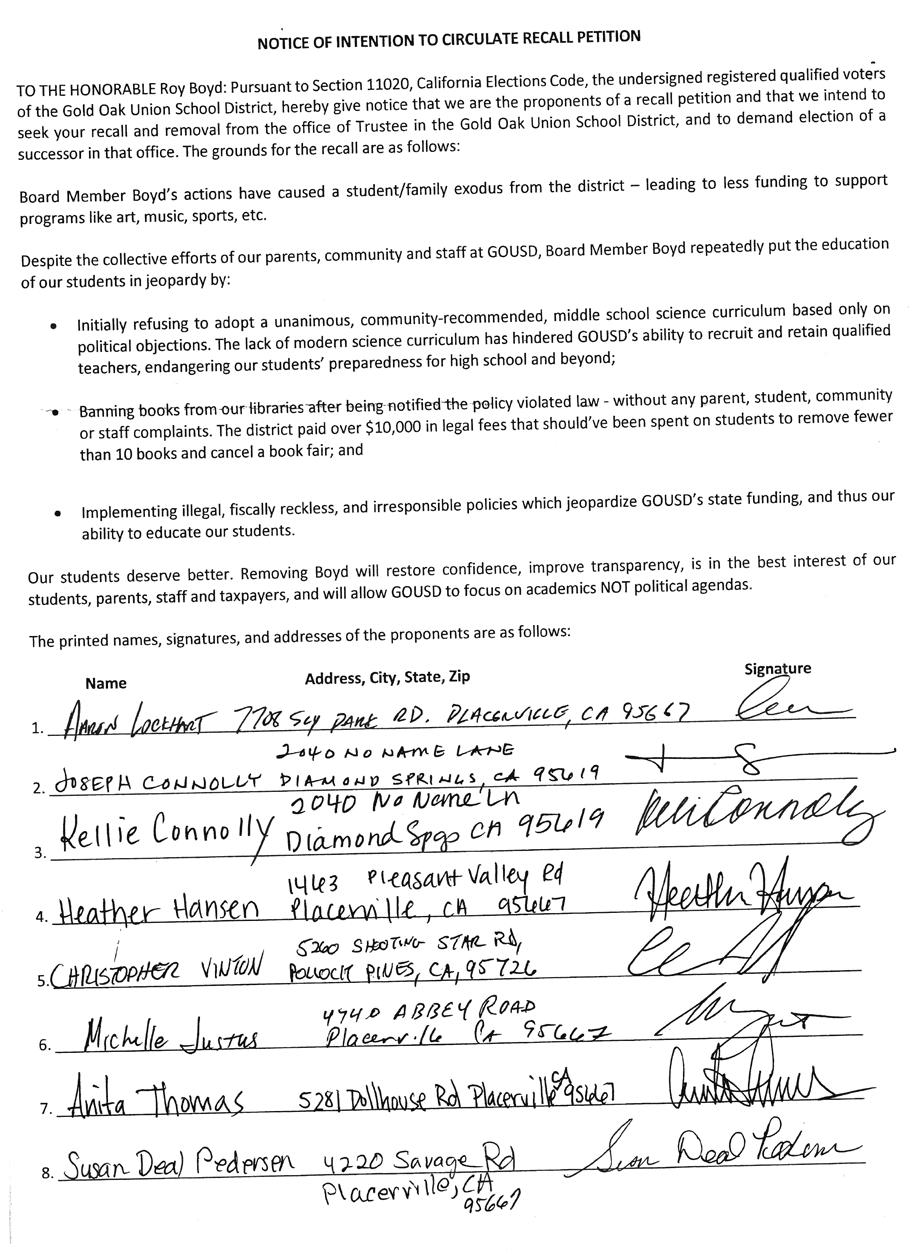 NOTICE OF INTENTION TO CIRCULATE RECALL PETITION
TO THE HONORABLE Roy Boyd: Pursuant to Section 11020, California Elections Code, the undersigned registered qualified voters
of the Gold Oak Union School District, hereby give notice that we are the proponents of a recall petition and that we intend to
seek your recall and removal from the office of Trustee in the Gold Oak Union School District, and to demand election of a
successor in that office. The grounds for the recall are as follows:
Board Member Boyd's actions have caused a student/family exodus from the district – leading to less funding to support
programs like art, music, sports, etc.
Despite the collective efforts of our parents, community and staff at GOUSD, Board Member Boyd repeatedly put the education
of our students in jeopardy by:
• Initially refusing to adopt a unanimous, community-recommended, middle school science curriculum based only on
political objections. The lack of modern science curriculum has hindered GOUSD's ability to recruit and retain qualified
teachers, endangering our students' preparedness for high school and beyond;
• Banning books from our libraries after being notified the policy violated law - without any parent, student, community
or staff complaints. The district paid over $10,000 in legal fees that should've been spent on students to remove fewer
than 10 books and cancel a book fair; and
• Implementing illegal, fiscally reckless, and irresponsible policies which jeopardize GOUSD's state funding, and thus our
ability to educate our students.
Our students deserve better. Removing Boyd will restore confidence, improve transparency, is in the best interest of our
students, parents, staff and taxpayers, and will allow GOUSD to focus on academics NOT political agendas.
The printed names, signatures, and addresses of the proponents are as follows:
Name Address, City, State, Zip Signature
1. AARON LOCKHART 7708 SLY PARK RD. PLACERVILLE, CA 95667
2040 NO NAME LANE
2. JOSEPH CONNOLLY DIAMOND SPRINGS, CA 95619
2040 No Name Ln
3. Kellie Connolly Diamond Spgs CA 95619 Kelli Connolly
1463 Pleasant Valley Rd
4. Heather Hansen Placerville, CA 95667 Heather Hansen
5260 SHOOTING STAR RD,
5. CHRISTOPHER VINTON POLLOCK PINES, CA, 95726
4740 ABBEY ROAD
6. Michelle Justus Placerville CA 95667
7. Anita Thomas 5281 Dollhouse Rd Placerville CA 95667
8. Susan Deal Pedersen 4220 Savage Rd Susan Deal Pedersen
Placerville, CA
95667